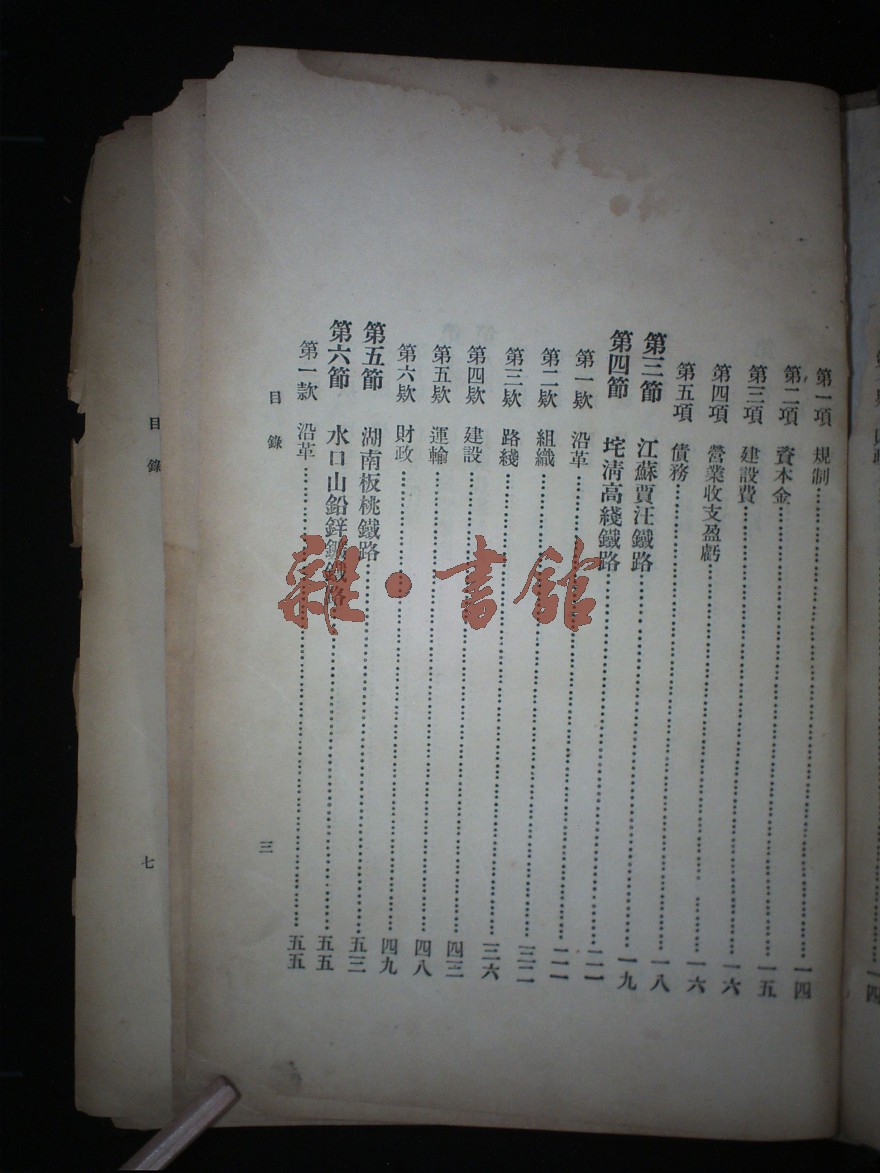 第一項 規制 一四
第二項 資本金 一五
第三項 建設費 一六
第四項 營業收支盈虧 一六
第五項 債務 一八
第三節 江蘇賈汪鐵路 一九
第四節 垞清高綫鐵路 二一
第一款 沿革 二一
第二款 組織 三二
第三款 路綫 三六
第四款 建設
第五款 運輸 四八
第六款 財政 四九
第五節 湖南板桃鐵路 五三
第六節 水口山鉛鋅鑛鐵路 五五
第一款 沿革 五五
目錄
三
雜·書館
目錄
七